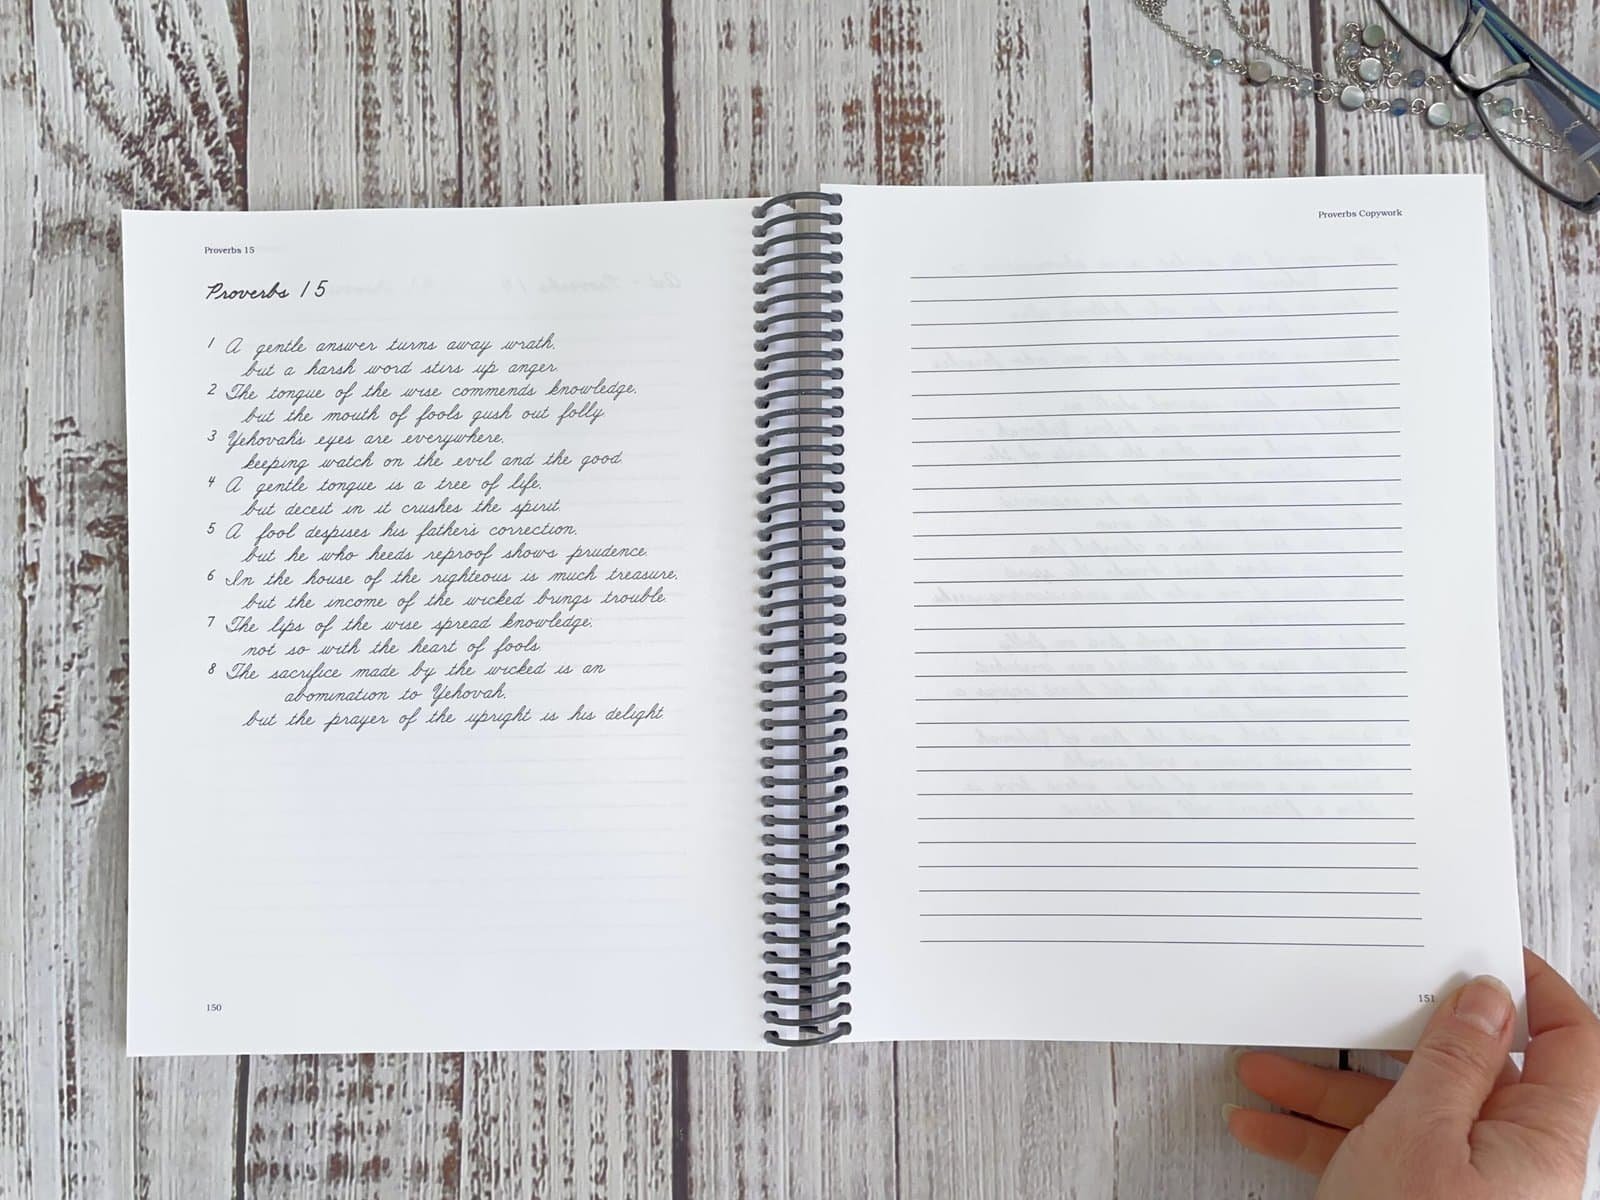 Proverbs 15
Proverbs 15
1 A gentle answer turns away wrath,
but a harsh word stirs up anger.
2 The tongue of the wise commends knowledge,
but the mouth of fools gush out folly.
3 Yehovah's eyes are everywhere,
keeping watch on the evil and the good.
4 A gentle tongue is a tree of life,
but deceit in it crushes the spirit.
5 A fool despises his father's correction,
but he who heeds reproof shows prudence.
6 In the house of the righteous is much treasure,
but the income of the wicked brings trouble.
7 The lips of the wise spread knowledge;
not so with the heart of fools.
8 The sacrifice made by the wicked is an
abomination to Yehovah,
but the prayer of the upright is his delight.
150
Proverbs Copywork
151